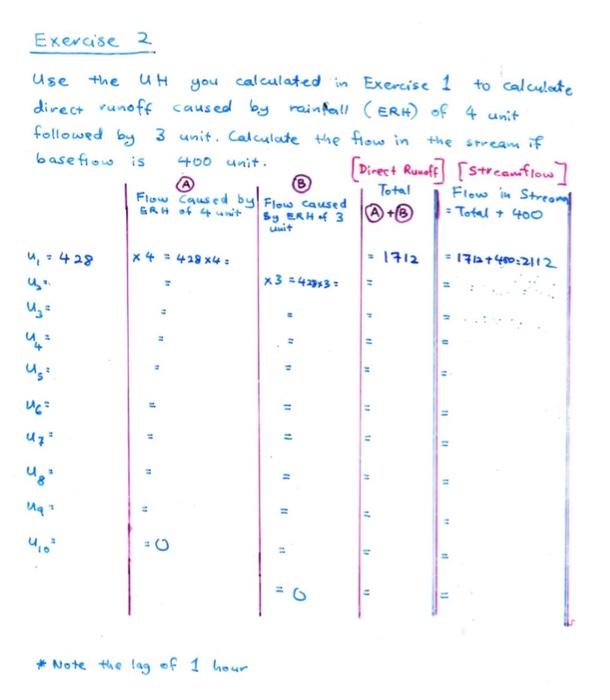 Exercise 2
Use the UH you calculated in Exercise 1 to calculate
direct runoff caused by rainfall (ERH) of 4 unit
followed by 3 unit. Calculate the flow in the stream if
baseflow is 400 unit.
[Direct Runoff] [Streamflow]
A B Total Flow in Stream
Flow Caused by Flow Caused A + B = Total + 400
ERH of 4 unit By ERH of 3
unit
u1 = 428 × 4 = 428 × 4 = = 1712 = 1712 + 400 = 2112
u2 = = × 3 = 428×3 = = =
u3 = = = = =
u4 = = = = =
u5 = = = = =
u6 = = = = =
u7 = = = = =
u8 = = = = =
u9 = = = = =
u10 = = 0 = = =
= 0 = =
* Note the lag of 1 hour